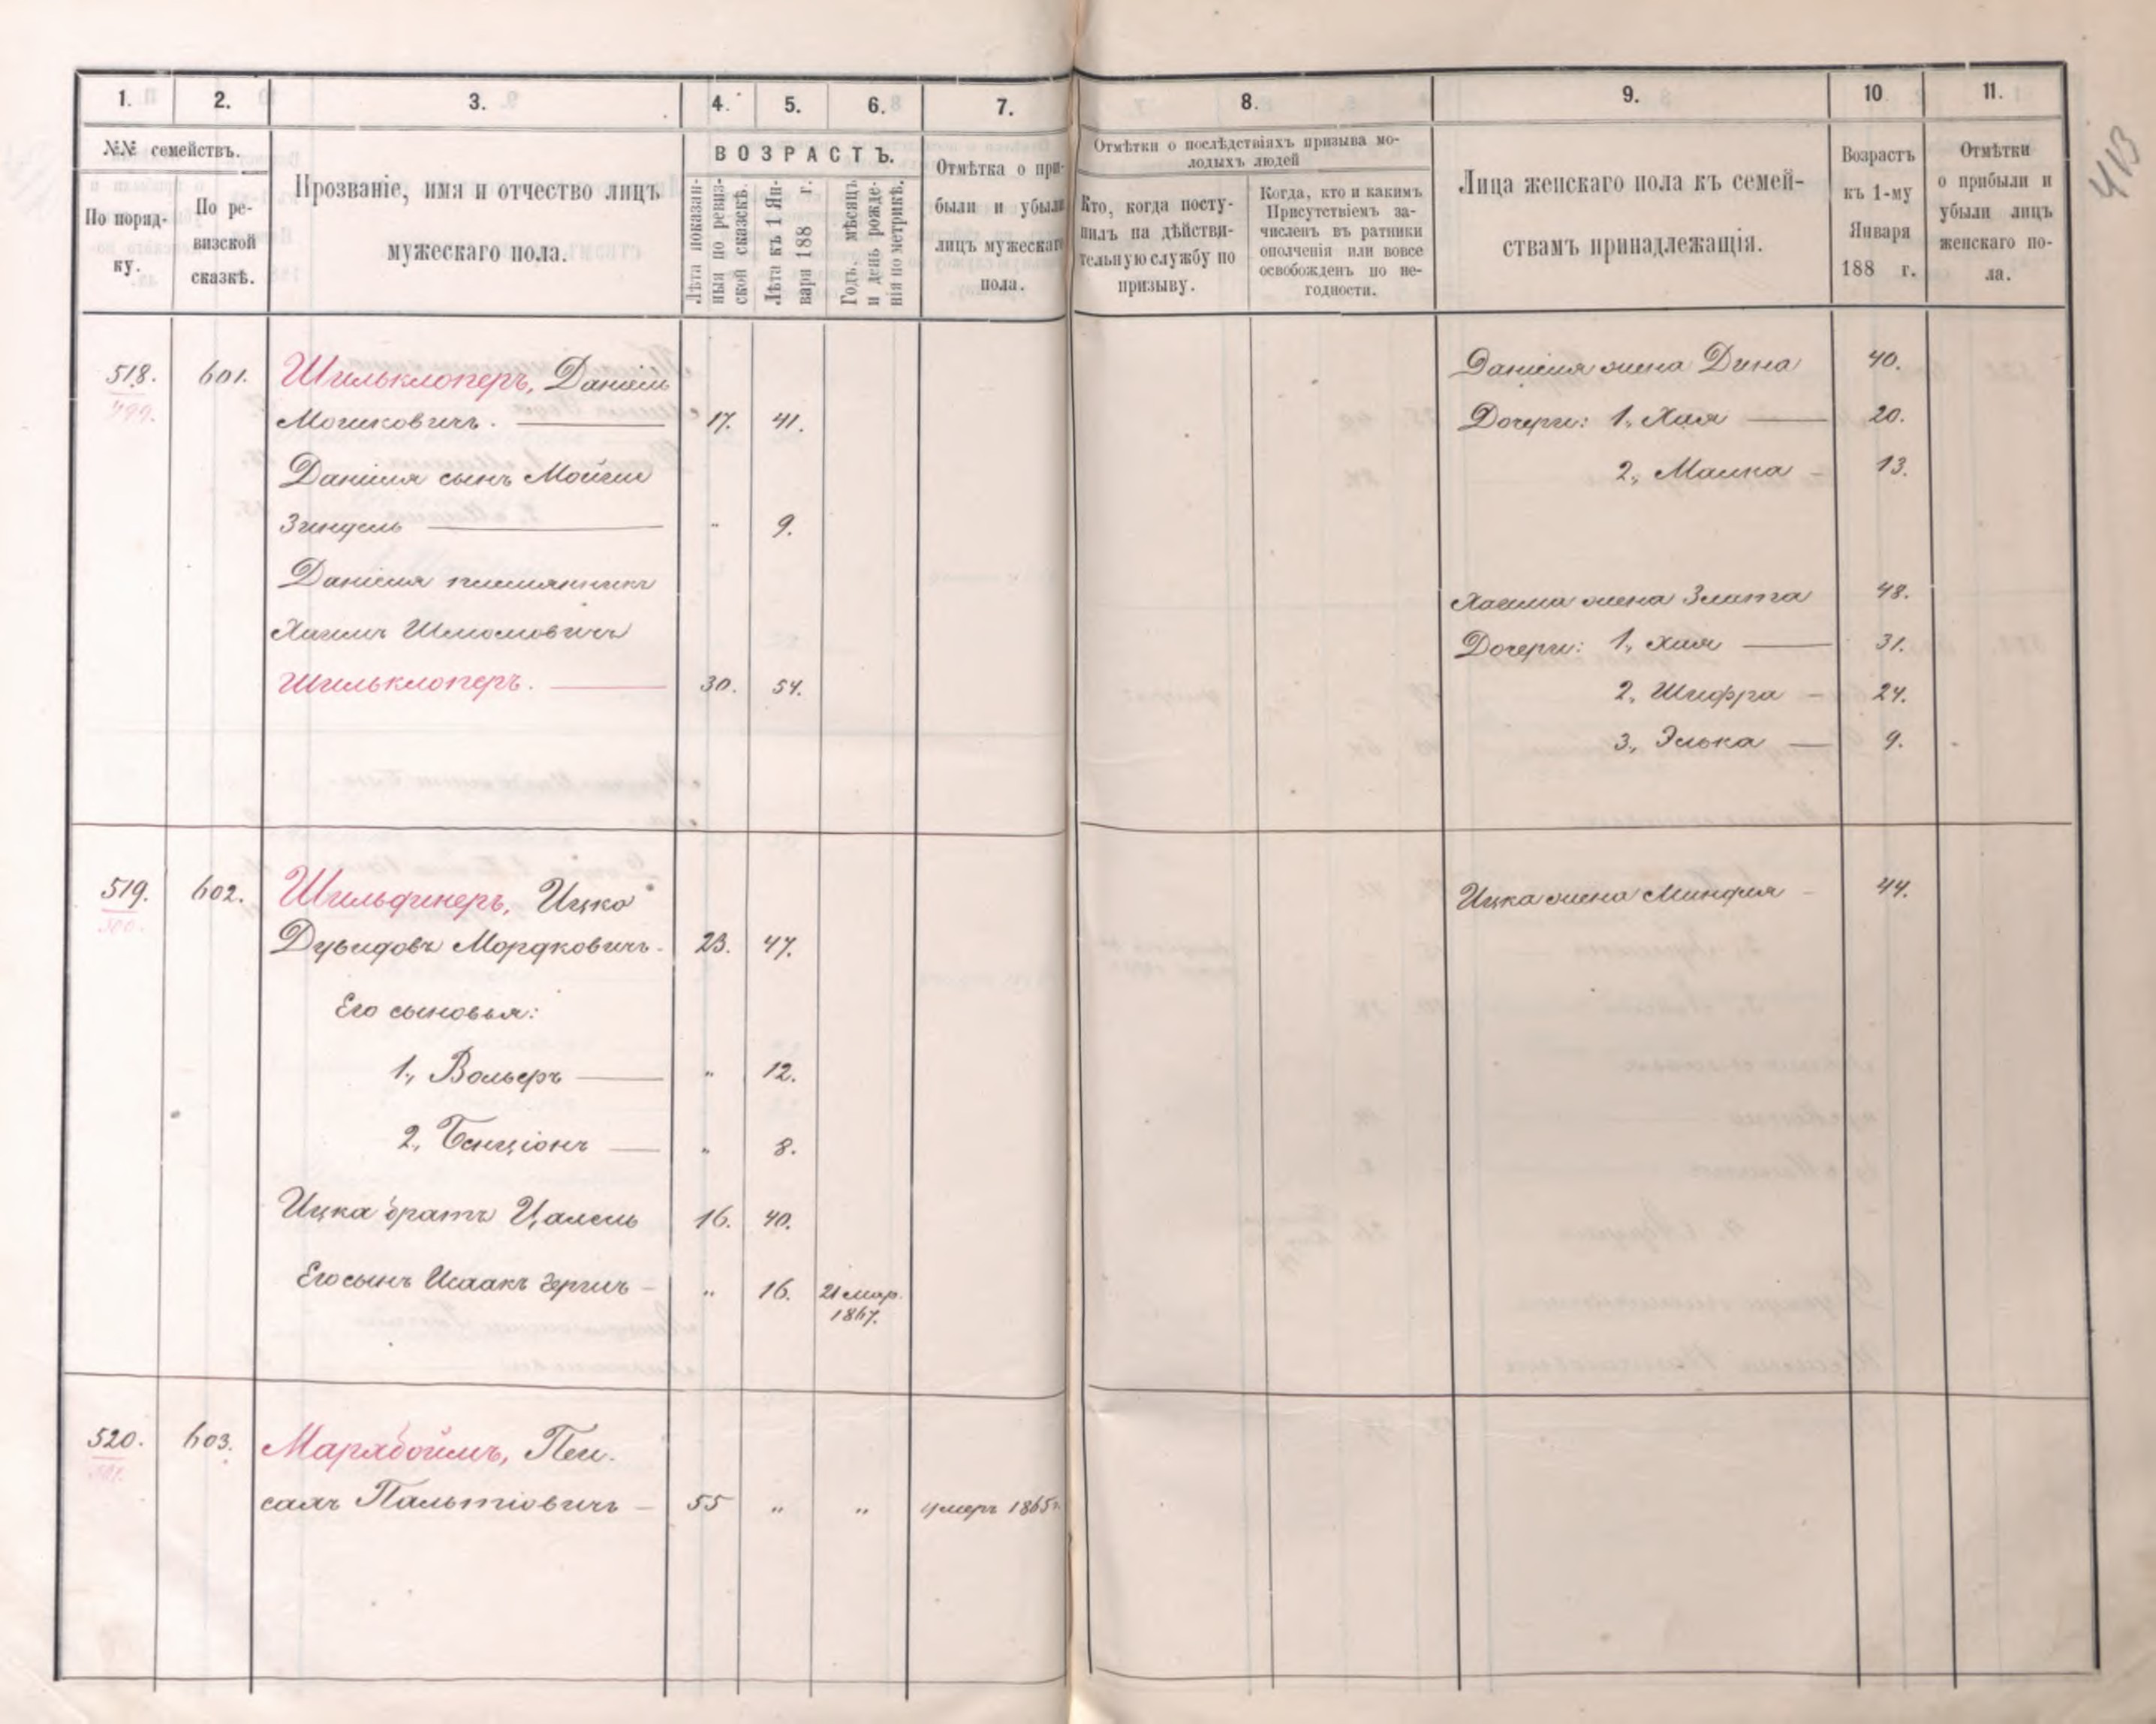 413
1. 2. 3. 4. 5. 6. 7. 8. 9. 10 11.
№№ семействъ.
По поряд-
ку.
По ре-
визской
сказкѣ.
Прозваніе, имя и отчество лицъ
мужескаго пола.
ВОЗРАСТЪ.
Лѣта показан-
ныя по ревиз-
ской сказкѣ.
Лѣта къ 1 Ян-
варя 188 г.
Годъ, мѣсяцъ
и день рожде-
нія по метрикѣ.
Отмѣтка о при-
были и убыли
лицъ мужескаго
пола.
Отмѣтки о послѣдствіяхъ призыва мо-
лодыхъ людей
Кто, когда посту-
пилъ на дѣйстви-
тельную службу по
призыву.
Когда, кто и какимъ
Присутствіемъ за-
численъ въ ратники
ополченія или вовсе
освобожденъ по не-
годности.
Лица женскаго пола къ семей-
ствамъ принадлежащія.
Возрастъ
къ 1-му
Января
188 г.
Отмѣтки
о прибыли и
убыли лицъ
женскаго по-
ла.
518. 601. Шильклоперъ, Даніилъ
499.
Мошковичъ. 17. 41.
Даніила сынъ Мойше
Зиндель " 9.
Даніила племянникъ
Хаимъ Шломовичъ
Шильклоперъ. 30. 54.
Даніила жена Дина 40.
Дочери: 1., Хая 20.
2., Малка 13.
Хаима жена Злата 48.
Дочери: 1., Хая 31.
2., Шифра 24.
3., Элька 9.
519. 602. Шильдинеръ, Ицко
500.
Дувидовъ Мордковичъ 23. 47.
Его сыновья:
1., Вольеръ " 12.
2., Бенціонъ " 8.
Ицка братъ Цалель 16. 40.
Его сынъ Исаакъ Гершъ " 16. 21 мар.
1867.
Ицка жена Миндля 44.
520. 603. Марябоймъ, Пей-
501.
сахъ Пальтіовичъ 55 " " умеръ 1865 г.